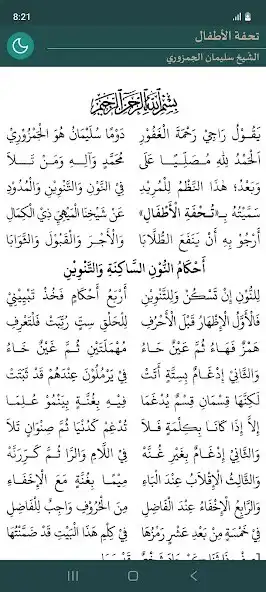 8:21
تحفة الأطفال
الشيخ سليمان الجمزوري
بِسْمِ اللَّهِ الرَّحْمَنِ الرَّحِيمِ
يَقُولُ رَاجِي رَحْمَةِ الْغَفُورِ دَوْمًا سُلَيْمَانُ هُوَ الْجَمْزُورِيْ
الْحَمْدُ لِلهِ مُصَلِّيًا عَلَى مُحَمَّدٍ وَآلِهِ وَمَنْ تَلَا
وَبَعْدُ؛ هَذَا النَّظْمُ لِلْمُرِيدِ فِي النُّونِ وَالتَّنْوِينِ وَالْمُدُودِ
سَمَّيْتُهُ بِـ«تُحْفَةِ الْأَطْفَالِ» عَنْ شَيْخِنَا الْمِيْهِيِّ ذِي الْكَمَالِ
أَرْجُو بِهِ أَنْ يَنْفَعَ الطُّلَّابَا وَالْأَجْرَ وَالْقَبُولَ وَالثَّوَابَا
أَحْكَامُ النُّونِ السَّاكِنَةِ وَالتَّنْوِينِ
لِلنُّونِ إِنْ تَسْكُنْ وَلِلتَّنْوِينِ أَرْبَعُ أَحْكَامٍ فَخُذْ تَبْيِينِيْ
فَالْأَوَّلُ الْإِظْهَارُ قَبْلَ الْأَحْرُفِ لِلْحَلْقِ سِتٍّ رُتِّبَتْ فَلْتَعْرِفِ
هَمْزٌ فَهَاءٌ ثُمَّ عَيْنٌ حَاءُ مُهْمَلَتَيْنِ ثُمَّ غَيْنٌ خَاءُ
وَالثَّانِي إِدْغَامٌ بِسِتَّةٍ أَتَتْ فِي يَرْمُلُونَ عِنْدَهُمْ قَدْ ثَبَتَتْ
لَكِنَّهَا قِسْمَانِ قِسْمٌ يُدْغَمَا فِيهِ بِغُنَّةٍ بِيَنْمُو عُلِمَا
إِلَّا إِذَا كَانَا بِكِلْمَةٍ فَلَا تُدْغِمْ كَدُنْيَا ثُمَّ صِنْوَانٍ تَلَا
وَالثَّانِي إِدْغَامٌ بِغَيْرِ غُنَّهْ فِي اللَّامِ وَالرَّا ثُمَّ كَرِّرَنَّهْ
وَالثَّالِثُ الْإِقْلَابُ عِنْدَ الْبَاءِ مِيْمًا بِغُنَّةٍ مَعَ الْإِخْفَاءِ
وَالرَّابِعُ الْإِخْفَاءُ عِنْدَ الْفَاضِلِ مِنَ الْحُرُوفِ وَاجِبٌ لِلْفَاضِلِ
فِي خَمْسَةٍ مِنْ بَعْدِ عَشْرٍ رَمْزُهَا فِي كِلْمِ هَذَا الْبَيْتِ قَدْ ضَمَّنْتُهَا